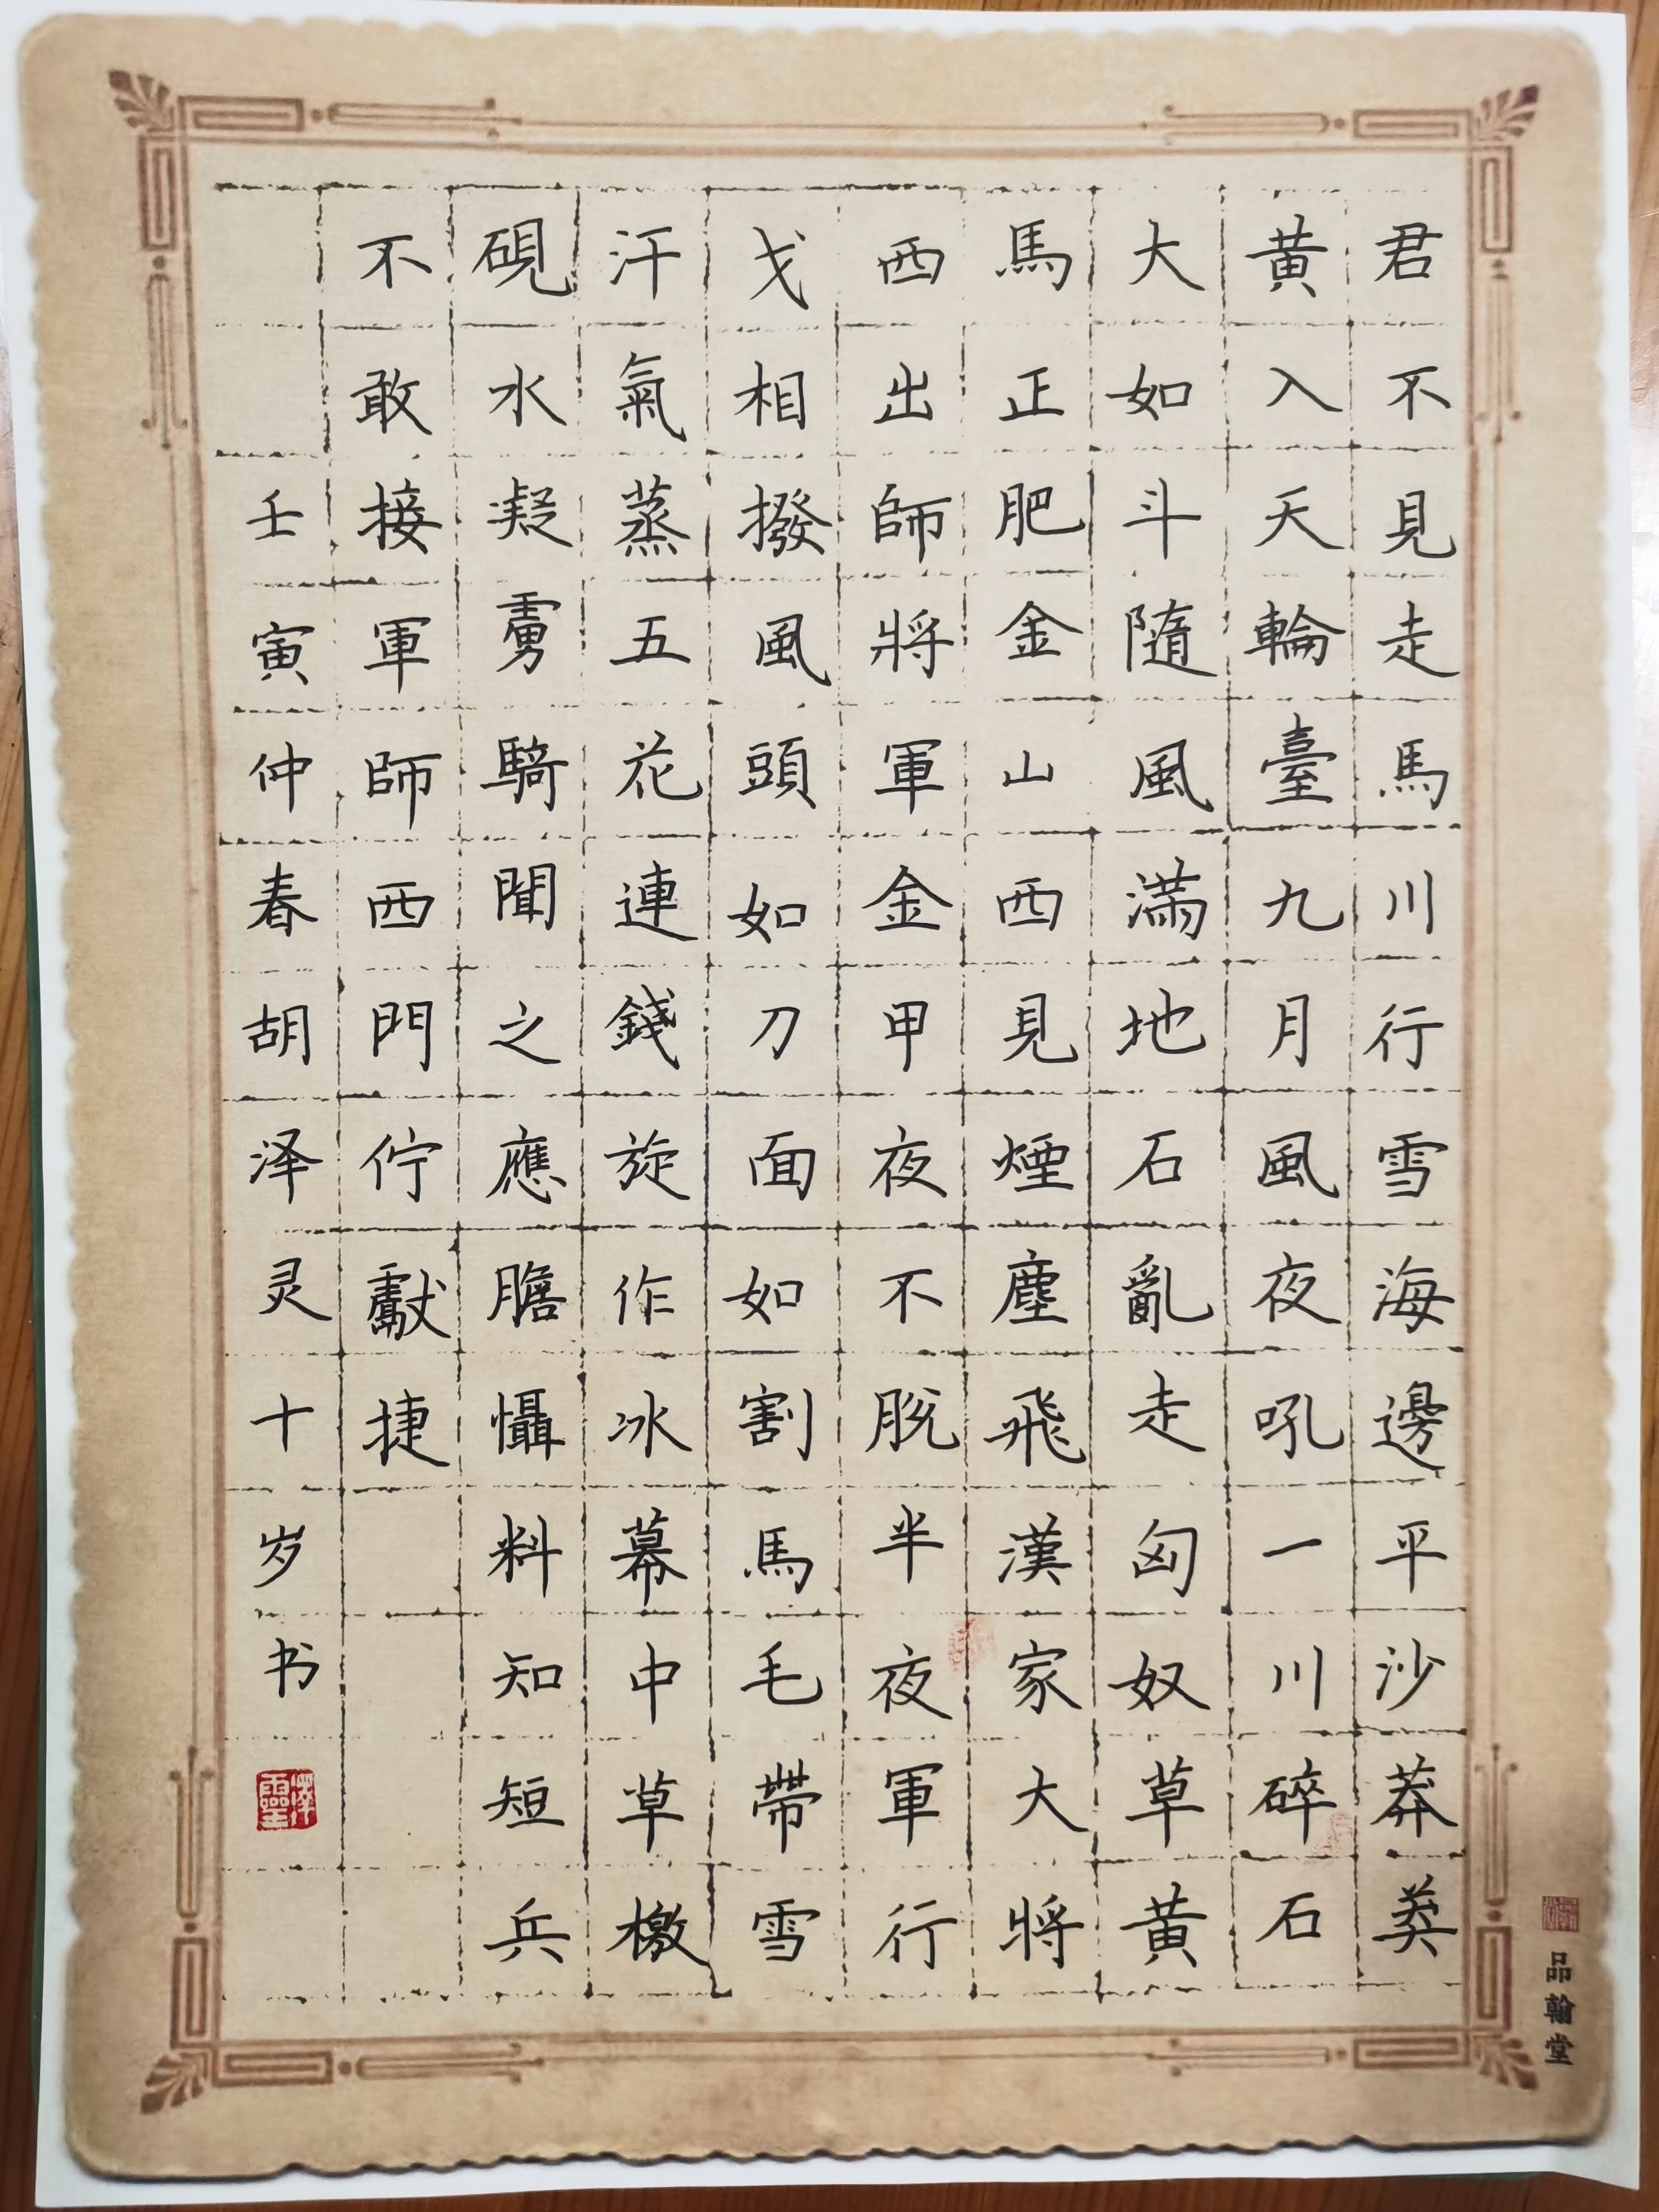 君不見走馬川行雪海邊平沙莽莽
黃入天輪臺九月風夜吼一川碎石
大如斗隨風滿地石亂走匈奴草黃
馬正肥金山西見煙塵飛漢家大將
西出師將軍金甲夜不脫半夜軍行
戈相撥風頭如刀面如割馬毛帶雪
汗氣蒸五花連錢旋作冰幕中草檄
硯水凝虜騎聞之應膽懾料知短兵
不敢接軍師西門佇獻捷
壬寅仲春胡泽灵十岁书
澤靈
品翰堂